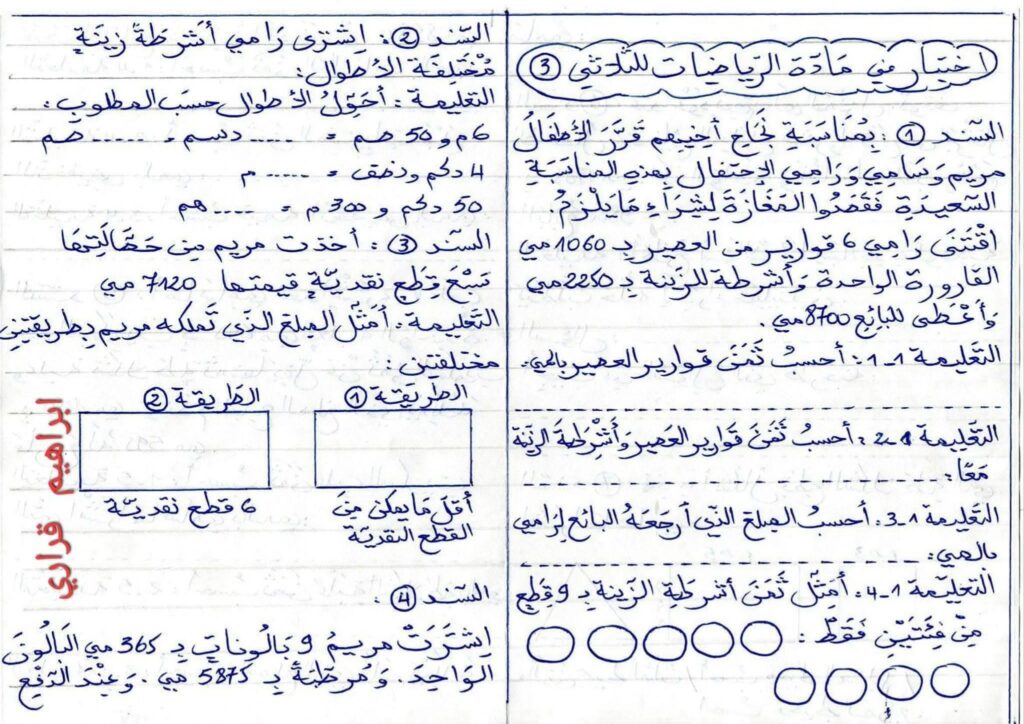 اختبار في مادّة الرياضيات للثلاثي ③
السّند ①: بِمُنَاسَبَةِ نَجَاحِ أَخِيهِم قَرَّرَ الأَطْفَالُ
مريم وَسَامِي وَرَامِي الإحتفال بِهذِهِ المناسَبَةِ
السّعيدَة فَقَصَدُوا المَغَازَةَ لِشِرَاءِ مَا يَلْزَمُ
اقْتَنَى رَامِي 6 قوارير من العصير بـ 1060 مي
القارورة الواحدة وَأشرطة للزينة بـ 2250 مي
وَأَعْطَى للبائع 8700 مي.
التّعليمة 1-1: أحسبُ ثَمَنَ قوارير العصير بالمي.
التّعليمة 1-2: أحسبُ ثَمَنَ قوارير العصير وَأَشْرِطَةِ الزينة
مَعًا:
التّعليمة 1-3: أحسبُ المبلغ الذّي أرجَعَهُ البائع لِرَامي
بالمي:
التّعليمة 1-4: أُمَثِّل ثَمَنَ أشرطة الزّينة بـ 9 قطع
مِنْ فِئَتَيْنِ فَقَطْ:
السّند ②: اِشترى رَامي أشرطةً زينَةٍ
مُخْتَلِفَة الأطوال:
التعليمة: أحَوِّلُ الأطوال حسَب المطلوب:
6 م و 50 صم = ...... دسم = ...... صم
4 دكم ونصف = ...... م
50 دكم و 300 م = .... هم
السّند ③: أخذت مريم من حَصَّالَتِهَا
سَبْعَ قِطَعٍ نقديّةٍ قيمتها 7120 مي
التّعليمة: أمَثّل المبلغ الذّي تملكه مريم بِطريقَتَيْنِ
مختلفتين:
الطّريقة ①
الطّريقة ②
أقلّ مَا يمكن مِنَ
القطع النقديّة
6 قطع نقديّة
السّند ④:
اِشتَرَتْ مريمُ 9 بَالُونَاتٍ بـ 365 مي البَالُونَ
الوَاحِدَ. وَمُرَطِّبَةً بـ 5875 مي. وَعِنْدَ الدّفْعِ
ابراهيم قراري